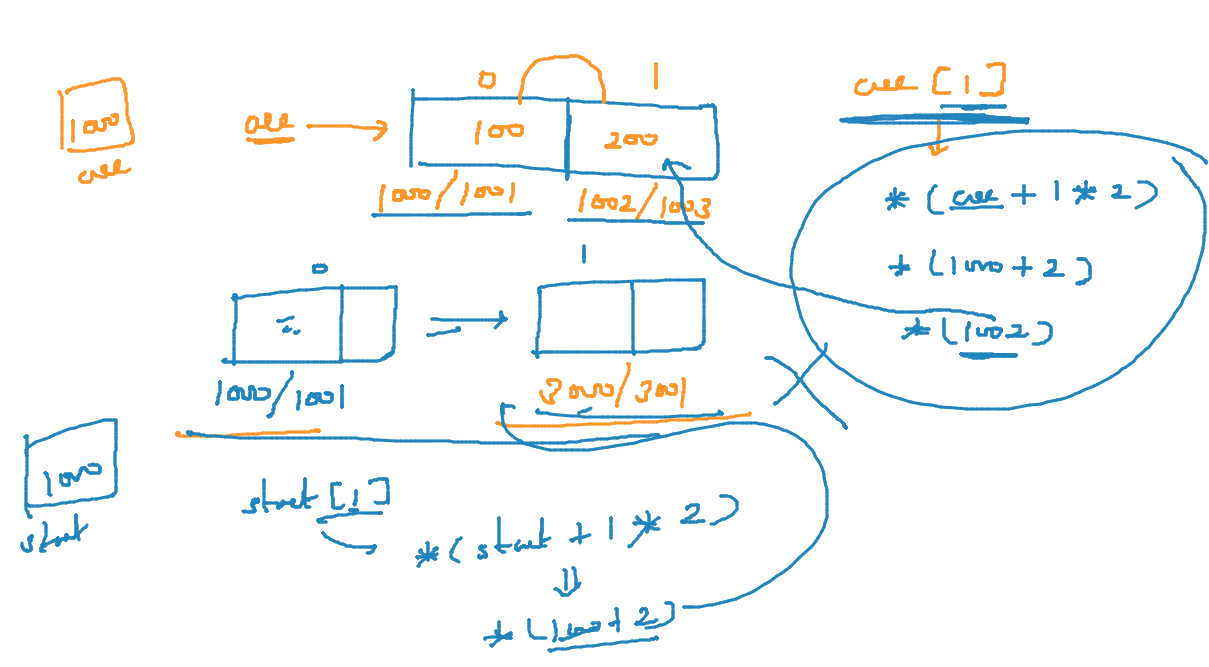 0 1
arr [1]
1000
arr → 100 200
arr
1000/1001 1002/1003
* (arr + 1 * 2)
* (1000 + 2)
* (1002)
0 1
1000/1001 3000/3001
1000
start
start [1]
* (start + 1 * 2)
* (1000 + 2)